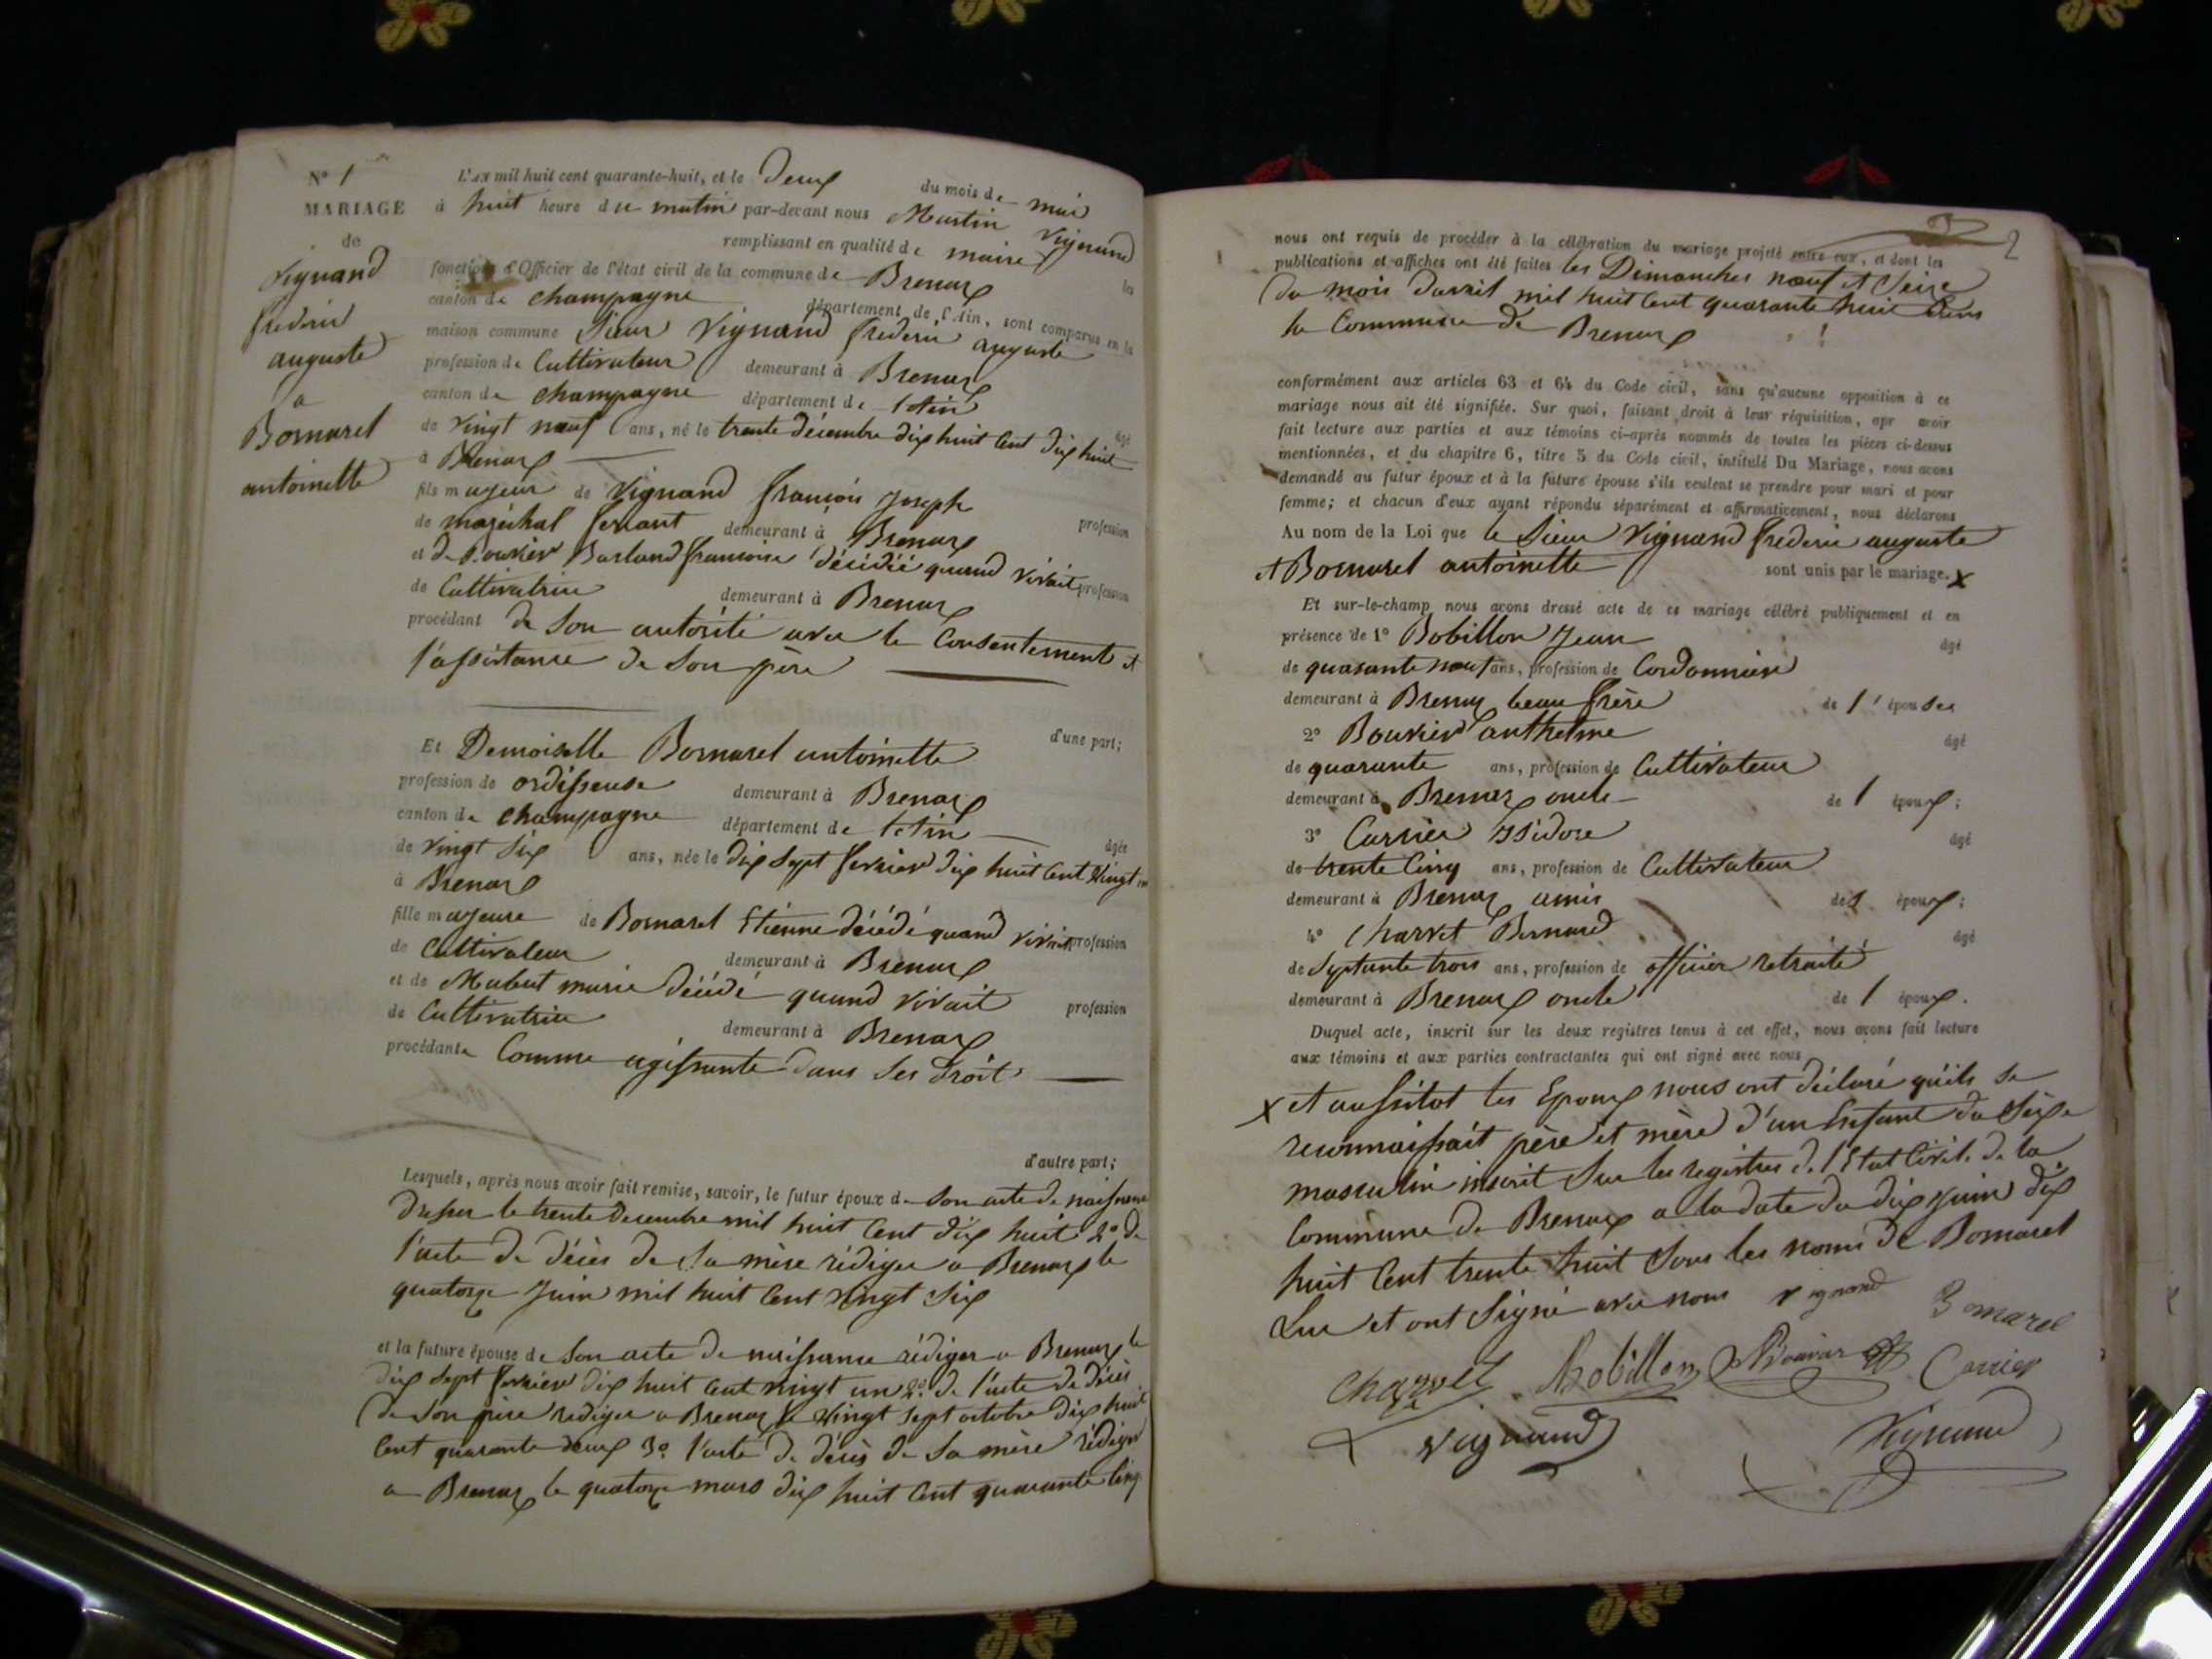 N° 1
MARIAGE
de
Vignand
frederic
auguste
a
Bornarel
antoinette
L'an mil huit cent quarante-huit, et le Deux du mois de mai
à huit heure du matin par-devant nous Martin Vignand
remplissant en qualité de maire les
fonctions d'Officier de l'état civil de la commune de Brenaz
canton de champagne département de l'Ain, sont comparus en la
maison commune Sieur Vignand frederic auguste
profession de Cultivateur demeurant à Brenaz
canton de champagne département de l'Ain âgé
de vingt neuf ans, né le trente décembre dix huit Cent dix huit
à Brenaz
fils majeur de Vignand françois Joseph profession
de maréchal ferrant demeurant à Brenaz
et de Bouvier Barland françoise décédée quand vivait profession
de Cultivatrice demeurant à Brenaz
procédant de son autorité avec le Consentement et
l'assistance de son père
d'une part;
Et Demoiselle Bornarel antoinette
profession de ordisseuse demeurant à Brenaz
canton de champagne département de l'Ain âgée
de vingt six ans, née le dix sept fevrier dix huit Cent vingt un
à Brenaz
fille majeure de Bornarel Etienne décédé quand vivait profession
de Cultivateur demeurant à Brenaz
et de Mabut marie décédé quand vivait profession
de Cultivatrice demeurant à Brenaz
procédante Comme agissante dans ses droit
d'autre part;
Lesquels, après nous avoir fait remise, savoir, le futur époux de son acte de naissance
Dresser le trente Decembre mil huit Cent dix huit 2° de
l'acte de décès de sa mère rédiger a Brenaz le
quatorze Juin mil huit Cent vingt six
et la future épouse de son acte de naissance rédiger a Brenaz le
dix sept fevrier dix huit Cent vingt un 2° de l'acte de décès
de son père rediger a Brenaz le vingt sept octobre dix huit
Cent quarante deux 3° l'acte de décès de sa mère rédiger
a Brenaz le quatorze mars dix huit Cent quarante Cinq
2
nous ont requis de procéder à la célébration du mariage projeté entre eux, et dont les
publications et affiches ont été faites les Dimanches neuf et Seize
du mois Davril mil huit Cent quarante huit dans
la Commune de Brenaz
conformément aux articles 63 et 64 du Code civil, sans qu'aucune opposition à ce
mariage nous ait été signifiée. Sur quoi, faisant droit à leur réquisition, apr avoir
fait lecture aux parties et aux témoins ci-après nommés de toutes les pièces ci-dessus
mentionnées, et du chapitre 6, titre 5 du Code civil, intitulé Du Mariage, nous avons
demandé au futur époux et à la future épouse s'ils veulent se prendre pour mari et pour
femme; et chacun d'eux ayant répondu séparément et affirmativement, nous déclarons
Au nom de la Loi que le Sieur Vignand frederic auguste
et Bornarel antoinette sont unis par le mariage. X
Et sur-le-champ nous avons dressé acte de ce mariage célébré publiquement et en
présence de 1° Bobillon Jean âgé
de quarante neuf ans, profession de Cordonnier
demeurant à Brenaz beau frère de l' épouse
2° Bouvier anthelme âgé
de quarante ans, profession de Cultivateur
demeurant à Brenaz oncle de l époux;
3° Carrier Isidore âgé
de trente Cinq ans, profession de Cultivateur
demeurant à Brenaz amis de l époux;
4° Charvet Bernard âgé
de Septante trois ans, profession de officier retraité
demeurant à Brenaz oncle de l époux.
Duquel acte, inscrit sur les deux registres tenus à cet effet, nous avons fait lecture
aux témoins et aux parties contractantes qui ont signé avec nous
X et aussitot les Epoux nous ont déclaré qu'ils se
reconnaissait père et mère d'un Enfant du Sexe
masculin inscrit sur les registres de l'Etat Civil de la
Commune de Brenaz a la date du dix Juin dix
huit Cent trente huit sous les noms de Bornarel
Luc et ont signé avec nous vignand Bornarel
Charvet Bobillon Bouvier Carrier
Vignand Vignand